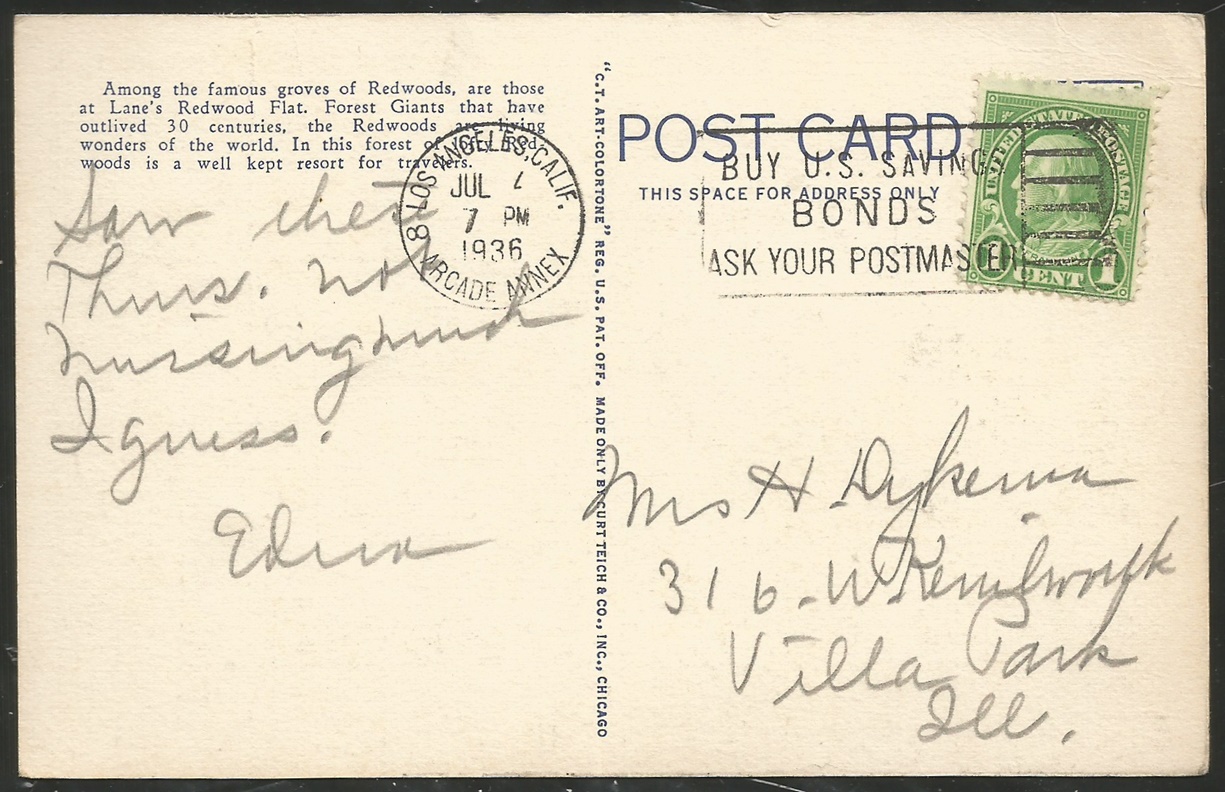 Among the famous groves of Redwoods, are those
at Lane's Redwood Flat. Forest Giants that have
outlived 30 centuries, the Redwoods are living
wonders of the world. In this forest of lofty Red-
woods is a well kept resort for travelers.
Saw these
Thurs. no
nursing much
I guess.
Edna
"C.T. ART-COLORTONE" REG. U.S. PAT. OFF. MADE ONLY BY CURT TEICH & CO., INC., CHICAGO
LOS ANGELES, CALIF.
8
JUL
7 PM
1936
ARCADE ANNEX
POST CARD
THIS SPACE FOR ADDRESS ONLY
BUY U.S. SAVINGS
BONDS
ASK YOUR POSTMASTER
UNITED STATES POSTAGE
CENT 1
Mrs H Dykema
316 - W Kenilworth
Villa Park
Ill.